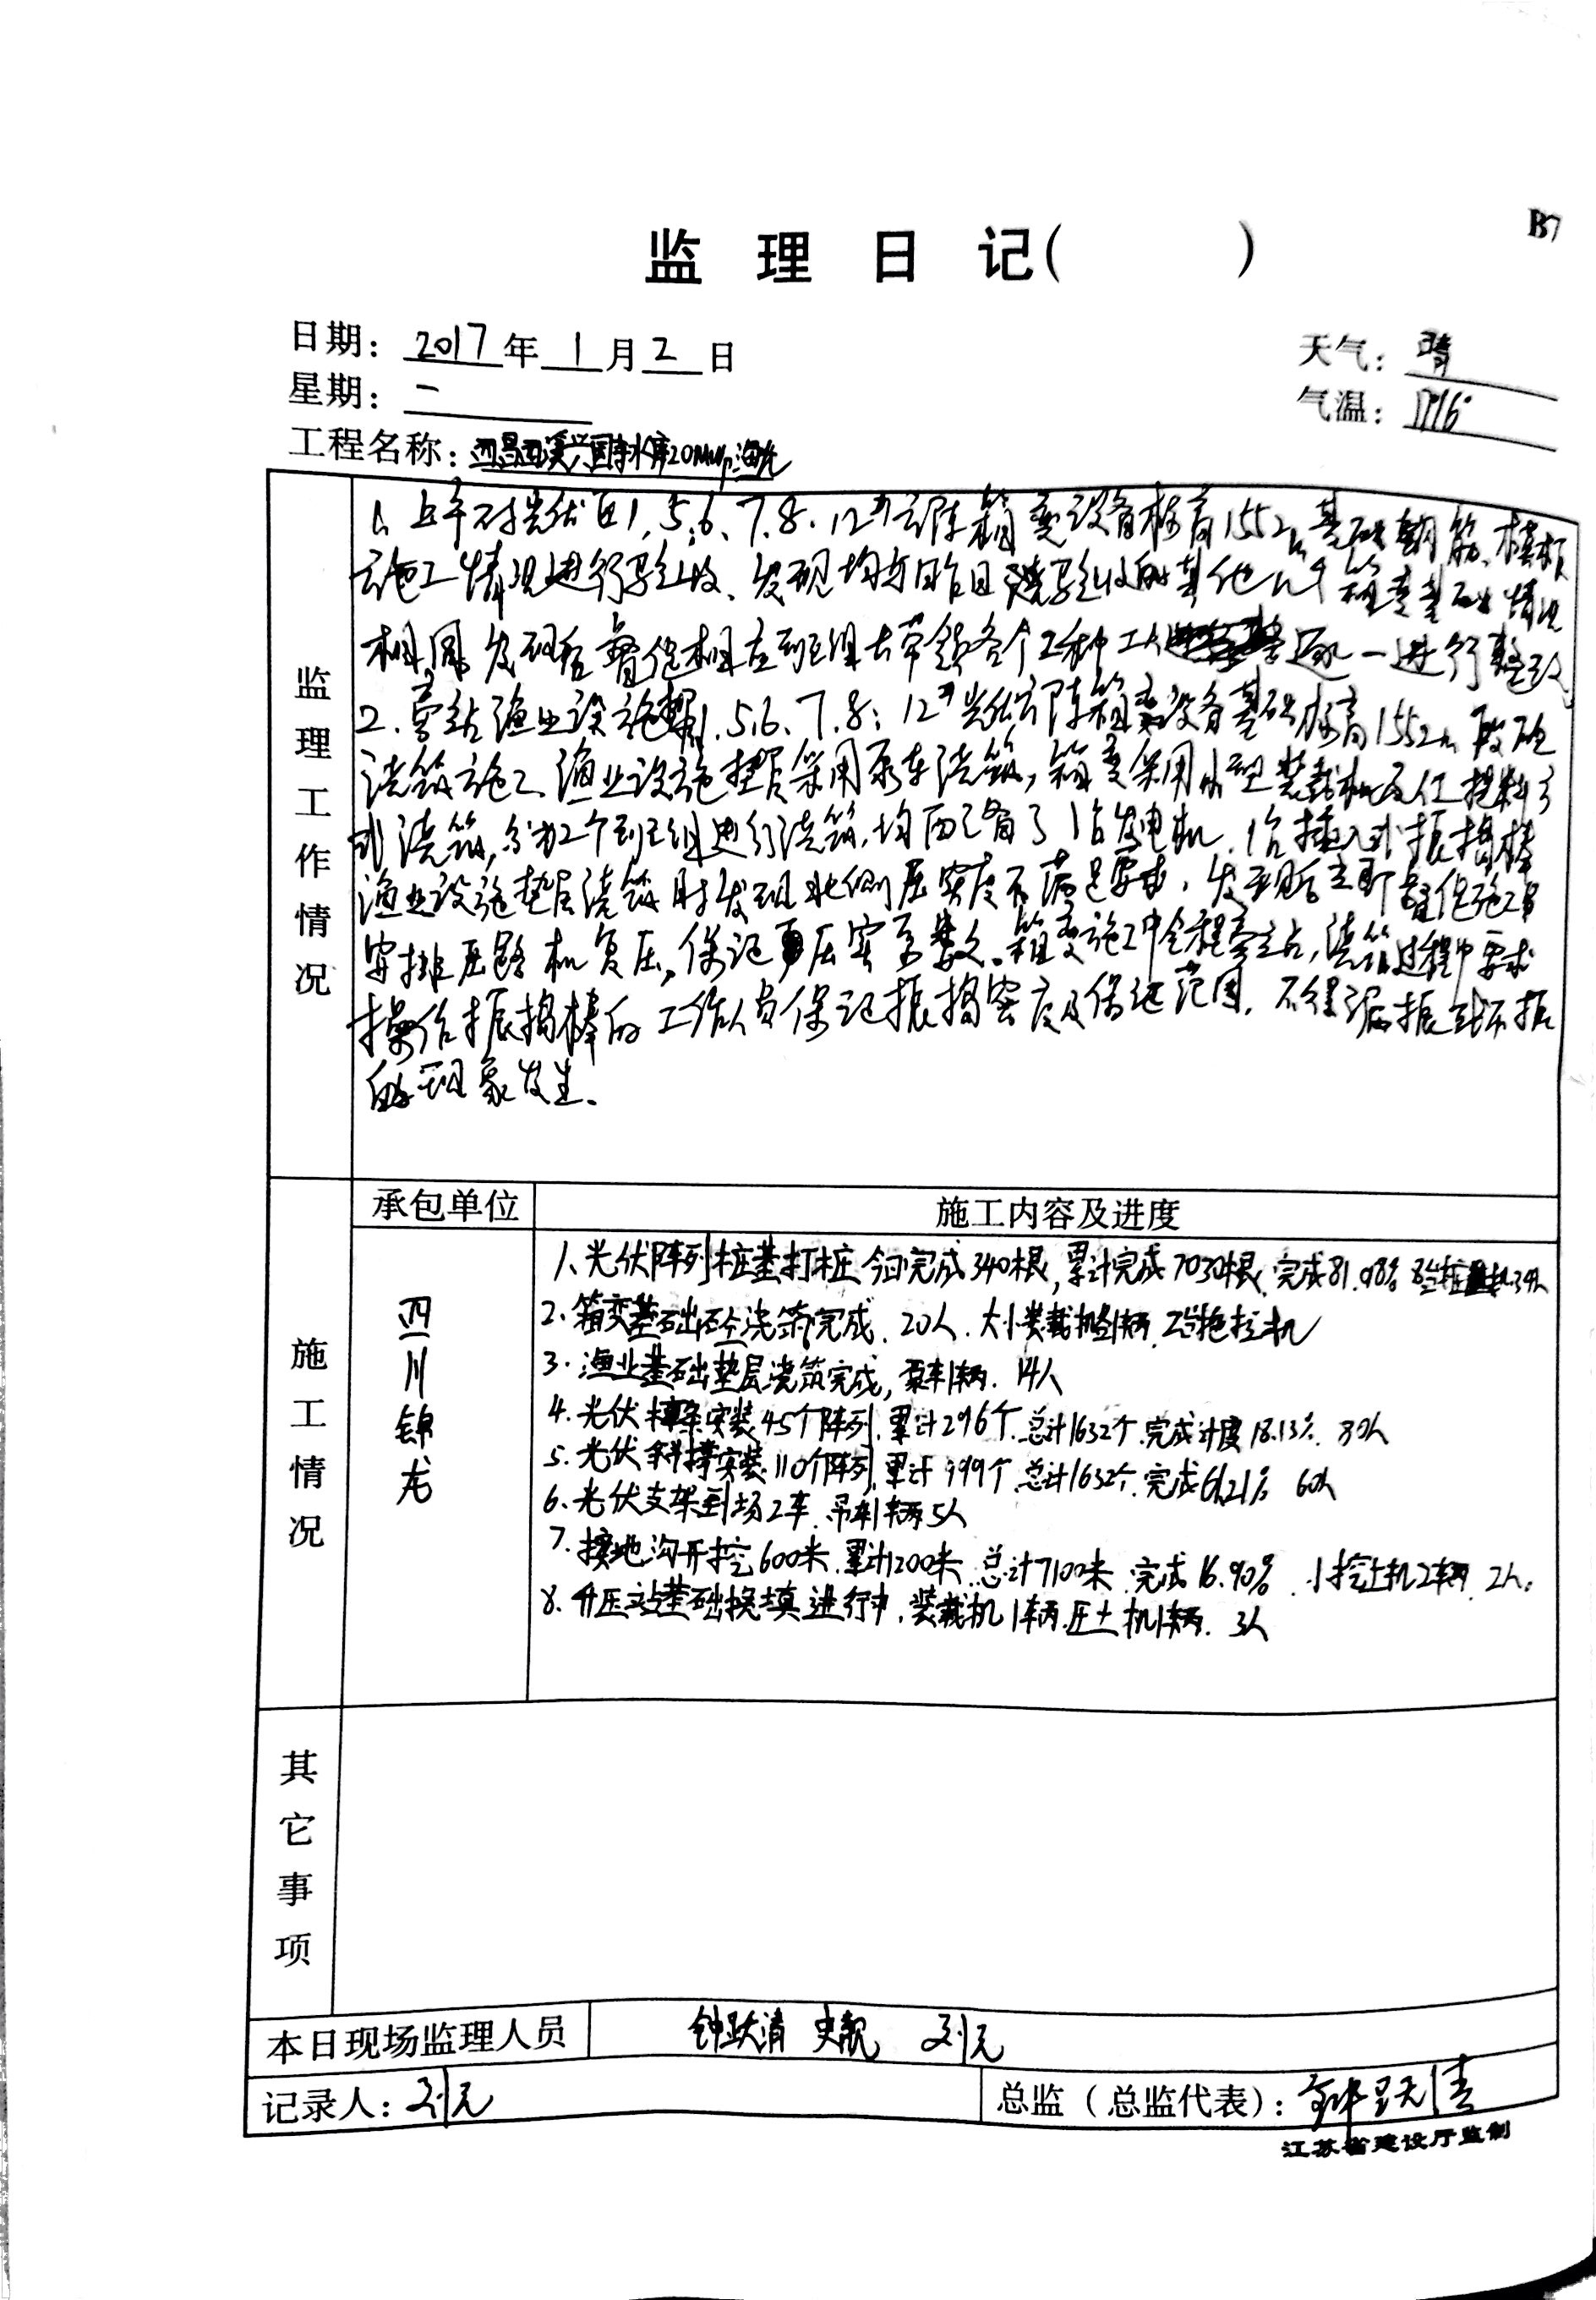 B7
监理日记( )
日期: 2017年1月2日
天气: 晴
星期: 一
气温:
工程名称: 西昌西溪兴国寺水库20MWp渔光
监理工作情况
1、上午对光伏区1.5.6.7.8.12#方阵箱变设备标高1552m基础钢筋、模板
施工情况进行验收、发现均与昨日验收的其他几个箱变基础情况
相同,发现后督促相应班组长带领各个工种工人逐一进行整改
2.旁站渔业设施 1.5.6.7.8.12#光伏方阵箱变设备基础标高1552m 砼
浇筑施工、渔业设施垫层采用泵车浇筑,箱变采用小型装载机及人工
浇筑,分为2个班组进行浇筑,均配备了1台发电机,1台插入式振捣棒
渔业设施垫层浇筑时发现北侧压实度不满足要求,发现后立即督促施工单
安排压路机复压,保证压实系数。箱变施工中全程旁站,浇筑过程中要求
操作振捣棒的工作人员保证振捣密度及保证范围,不得漏振或不振
的现象发生。
施工情况
承包单位
施工内容及进度
四川锦龙
1、光伏阵列桩基打桩 今日完成340根,累计完成7030根,完成81.98%
2.箱变基础砼浇筑完成.20人.大小装载机 辆.2台拖拉机
3.渔业基础垫层浇筑完成,泵车1辆.14人
4.光伏 安装45个阵列.累计296个.总计1632个.完成计度18.13%.30人
5.光伏斜撑安装.110个阵列.累计999个.总计1632个.完成61.21% 60人
6.光伏支架到场2车.吊车1辆5人
7.接地沟开挖600米.累计1200米.总计7100米.完成16.90%.小挖土机2辆.2人.
8.升压站基础换填进行中.装载机1辆.压土机1辆.3人
其它事项
本日现场监理人员 钟跃清 史靓 刘元
记录人: 刘元
总监(总监代表): 钟跃清
江苏省建设厅监制